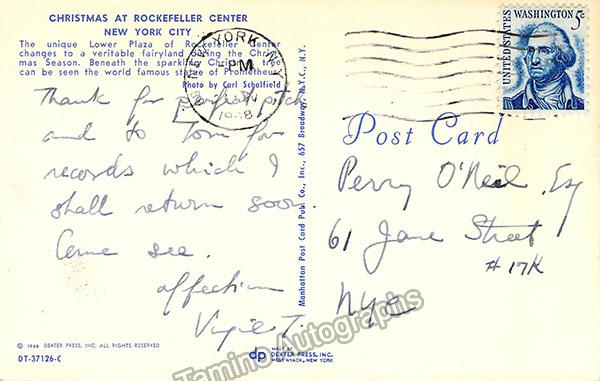 CHRISTMAS AT ROCKEFELLER CENTER
NEW YORK CITY
The unique Lower Plaza of Rockefeller Center
changes to a veritable fairyland during the Christ-
mas Season. Beneath the sparkling Christmas tree
can be seen the world famous statue of Prometheus.
Photo by Carl Scholfield
Thank for perfect pitch
and to Tom for
records which I
shall return soon.
Come see.
affection
Virgil T.
© 1966 DEXTER PRESS, INC. ALL RIGHTS RESERVED
DT-37126-C
Manhattan Post Card Pub. Co., Inc., 657 Broadway, N.Y.C., N.Y.
NEW YORK, N.Y.
PM
1968
UNITED STATES
WASHINGTON 5c
Post Card
Perry O'Neil, Esq
61 Jane Street
# 17K
NYC
dp
MADE BY
DEXTER PRESS, INC.
WEST NYACK, NEW YORK
Tamino Autographs